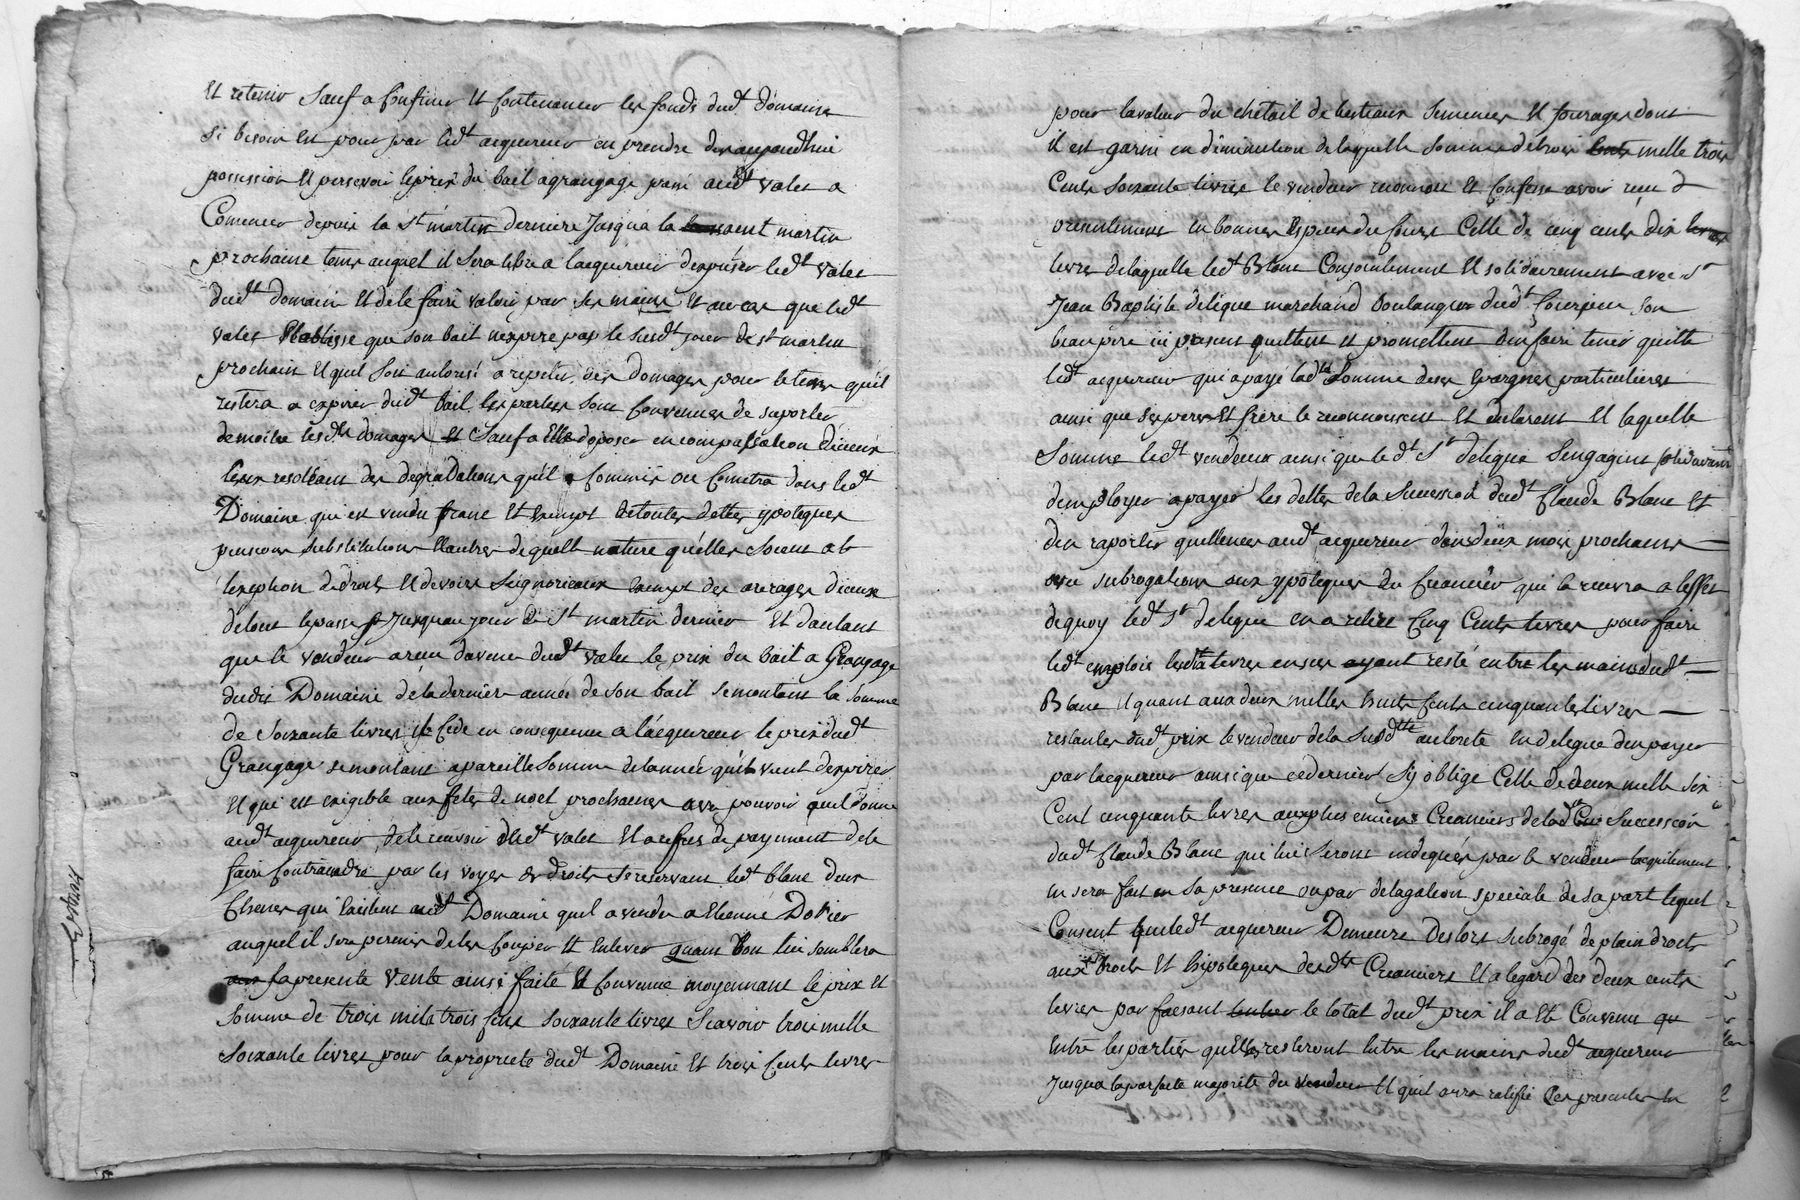 Et retenir Sauf a Confiner Et Contenancer les fonds dud.t domaine
Si besoin Est pour par led.t acquereur en prendre des aujourdhui
possession Et persevoir leprix du bail agrangage passé aud.t valet a
Comencer depuis la S.t martin derniere Jusqua la saint martin
prochaine tems auquel il Sera libre a lacquereur dexpulser led.t valet
dud.t domaine Et dele faire valoir par Ses mains Et au cas que led.t
valet Etablisse que Son bail nexpire pas le Susd.t jour de S.t martin
prochain Et quil Soit autorisé a repeter des Domages pour le tems quil
restera a expirer dud.t bail les parties Sont Convenues de suporter
demoitie lesd.ts domages Et Sauf a Elles doposer en compensation diceux
Ceux resultans des degradations quil a Commis ou Cometra dans led.t
Domaine qui est vendu franc Et Exempt detoutes dettes ypoteques
pensions substitutions Et autres dequelle nature quelles Soient a la
Exeption de droits Et devoirs Seignorieaux Exempt des arerages diceux
detout lepassé Jusquau jour de S.t martin dernier Et dautant
que le vendeur a recu davance dud.t valet le prix du bail a Grangage
dudit Domaine de la derniere année de son bail semontant la somme
de Soixante livres il Cede en consequence a lacquereur le prix dud.t
Grangage semontant apareille Somme de lannée quil vient dexpirer
Et qui est exigible aux fetes de noel prochaines avec pouvoir quil donne
aud.t acquereur de le recevoir dud.t valet Et au refus de payement de le
faire Contraindre par les voyes de droit Se reservant led.t blanc deux
Chenes qui Existent aud.t Domaine quil a vendu a Etienne Dorier
auquel il sera permis deles Couper Et Enlever quant bon lui semblera
la presente vente ainsi faite Et Convenue moyennant le prix et
Somme de trois mille trois Cent Soixante livres Scavoir trois mille
Soixante livres pour la proprieté dud.t Domaine Et trois Cents livres
pour lavaleur du chetail de bestiaux Semences Et fourages dont
il est garni en diminution de laquelle Somme detrois mille trois
Cents Soixante livres le vendeur reconnoit Et Confesse avoir recu
presentement En bonnes Especes du Cours Celle de cinq cents dix
livres delaquelle led.t Blanc Conjointement Et solidairement avec S.r
Jean Baptiste deligue marchand boulanger dud.t Courzieu Son
beaupere ici present quittent Et promettent den faire tenir quitte
led.t acquereur qui apayé lad.te Somme deses Epargnes particulieres
ainsi que Ses pere Et frere le reconnoissent Et declarent Et laquelle
Somme led.t vendeur ainsi que led.t S.r deligue Sengagent Solidairement
demployer apayer les dettes dela Succession dud.t Claude Blanc Et
den raporter quittences aud.t acquereur dans deux mois prochains
avec subrogation aux ypoteques du Creancier qui la recevra a leffet
dequoy led.t S.r deligue en a retiré Cinq Cents livres pour faire
led.t emploi les dix livres ensus ayant resté entre les mains dud.t
Blanc Et quant aux deux milles huits Cents cinquante livres
restantes dud.t prix le vendeur de la Susd.tte autorité En delegue den payer
par lacquereur ainsi que ce dernier Sy oblige Celle de deux mille Six
Cent cinquante livres aux plus enciens Creanciers de la Succession
dud.t Claude Blanc qui lui Seront indiqués par le vendeur lacquitement
en sera fait en Sa presence ou par delagation speciale de sa part lequel
Consent que led.t acquereur Demeure deslors subrogé de plain droit
aux droits Et hipoteques desd.ts Creanciers Et a legard des deux cents
livres par faisant le total dud.t prix il a Eté Convenu
Entre les parties quelles resteront Entre les mains dud.t acquereur
Jusqua la parfaite majorité du vendeur Et quil aura ratifié Ces presentes En